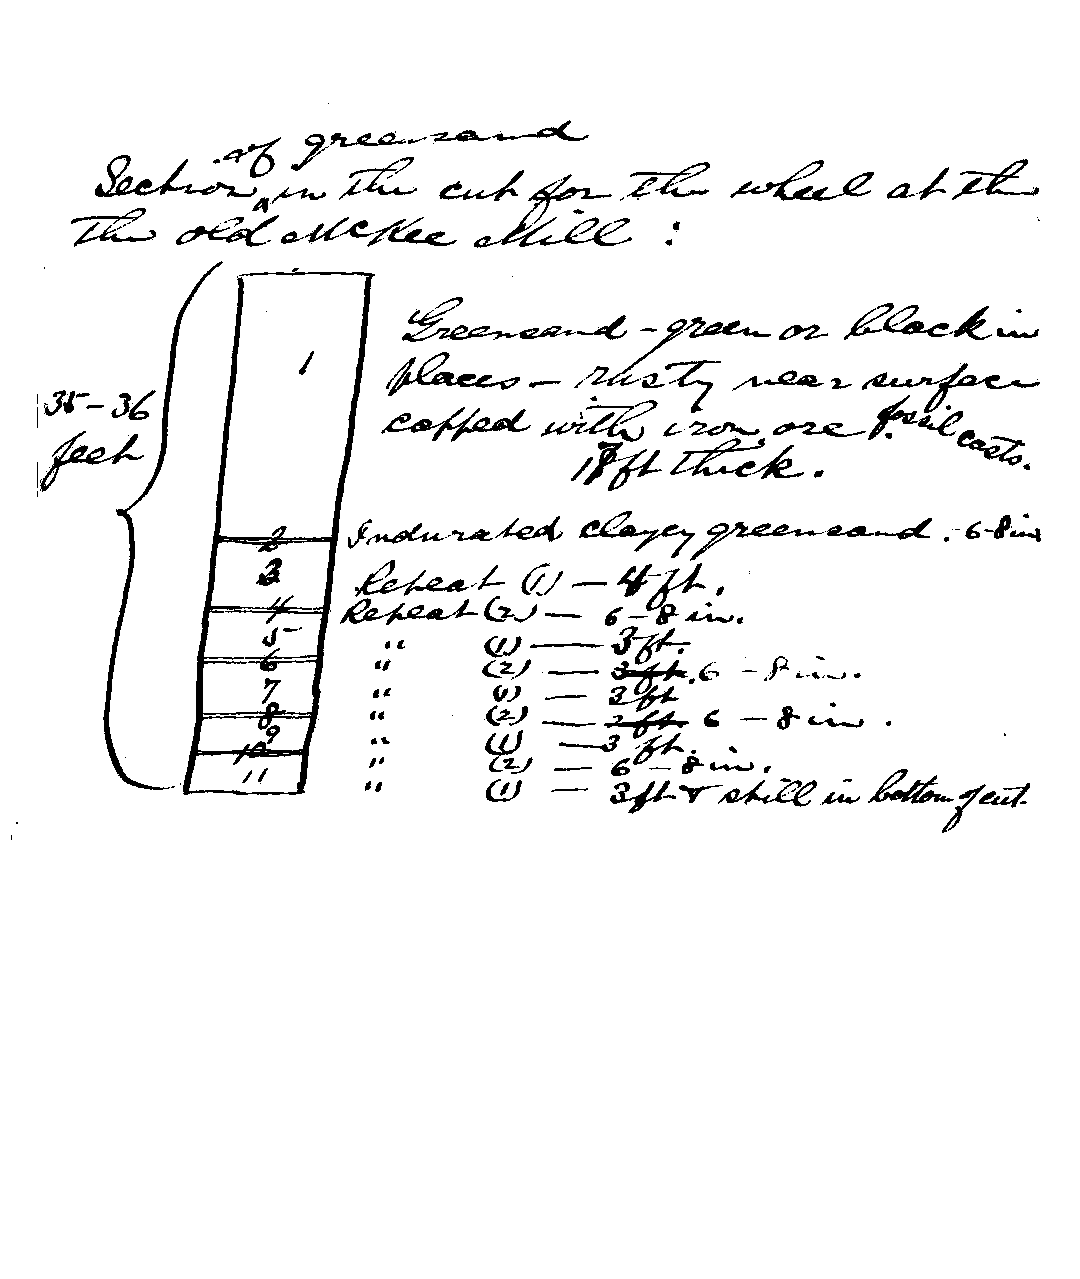 of greensand
Section ^ in the cut for the wheel at the
the old McKee Mill :
35-36
feet
1
Greensand - green or black in
places - rusty near surface
capped with iron ore & fossil casts.
ft thick.
2 Indurated clayey greensand. 6-8 in
3 Repeat (1) - 4 ft.
4 Repeat (2) - 6-8 in.
5 " (1) - 3 ft.
6 " (2) - 3 ft. 6 - 8 in.
7 " (1) - 3 ft
8 " (2) - 3 ft. 6 - 8 in.
9 " (1) - 3 ft.
10 " (2) - 6 - 8 in.
11 " (1) - 3 ft & still in bottom of cut.